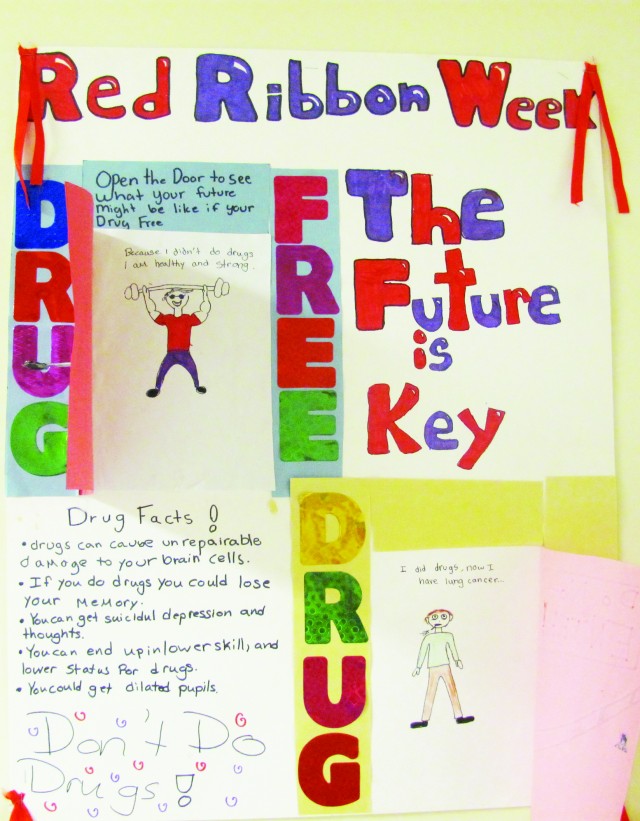 Red Ribbon Week
Open the Door to see
what your future
might be like if your
Drug Free
Because I didn't do drugs
I am healthy and strong.
DRUG
FREE
The
Future
is
Key
Drug Facts !
• drugs can cause unrepairable
damage to your brain cells.
• If you do drugs you could lose
your memory.
• You can get suicidul depression and
thoughts.
• You can end up in lower skill, and
lower status for drugs.
• You could get dilated pupils.
Don't Do
Drugs !
DRUG
I did drugs, now I
have lung cancer...